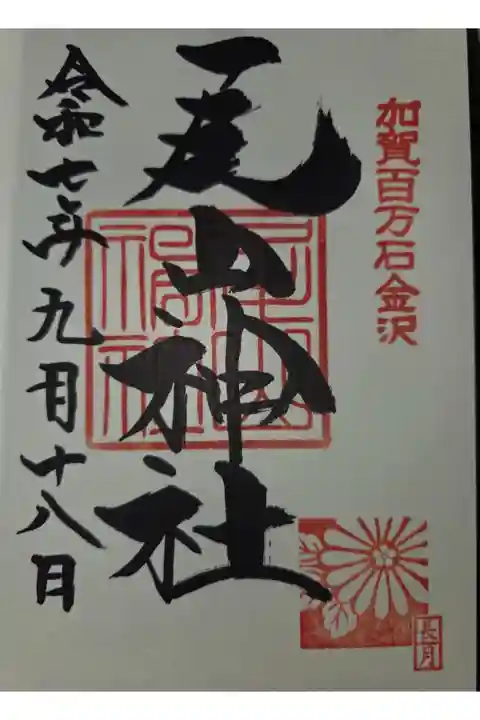 加賀百万石金沢
尾山神社
令和七年九月十八日
長月